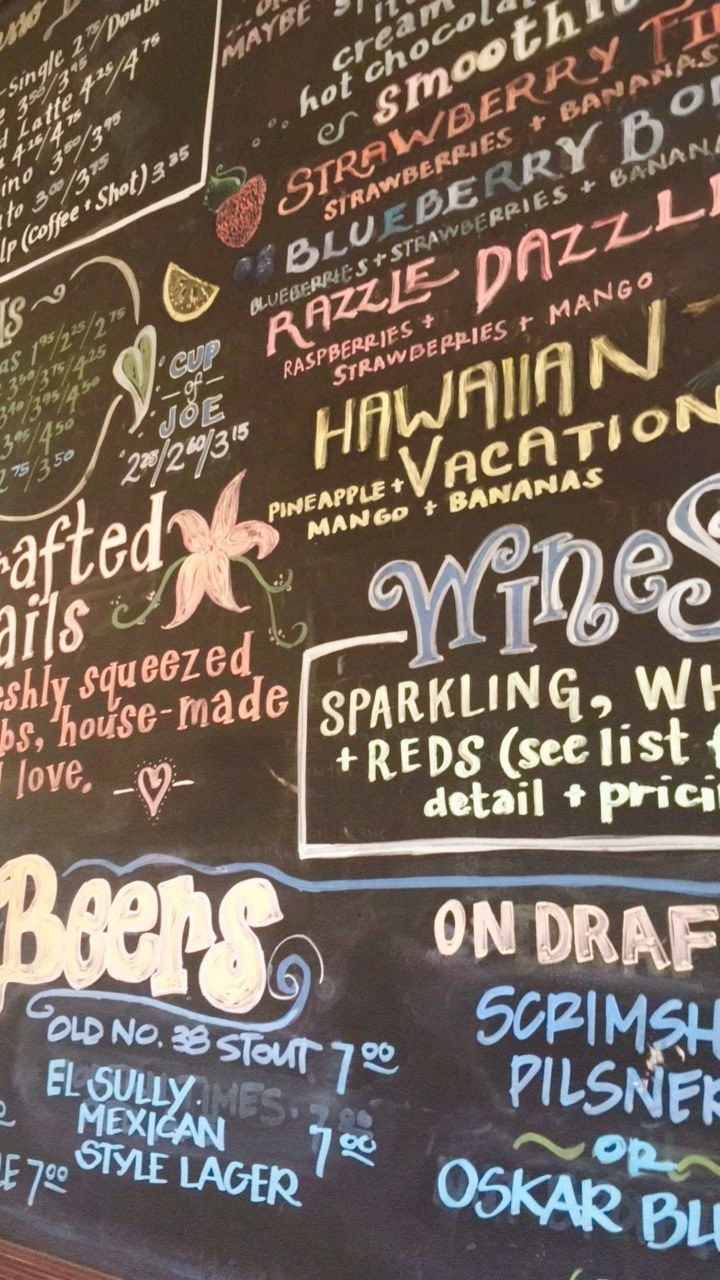 -Single 2.75/Doubl
3.50/3.95
Latte 4.25/4.75
4.25/4.75
ino 3.50/3.95
to 3.00/3.75
lp (coffee + Shot) 3.25
MAYBE
cream
hot chocola
smoothi
STRAWBERRY FI
STRAWBERRIES + BANANAS
BLUEBERRY BO
BLUEBERRIES + STRAWBERRIES + BANANA
RAZZLE DAZZL
RASPBERRIES +
STRAWBERRIES + MANGO
HAWAIIAN
VACATION
PINEAPPLE +
MANGO + BANANAS
as 1.95/2.25/2.75
3.50/3.75/4.25
3.95/4.50
3.95/4.50
.75/3.50
CUP
of
JOE
2.25/2.60/3.15
rafted
ails
eshly squeezed
bs, house-made
love.
Wines
SPARKLING, WH
+ REDS (see list f
detail + prici
Beers
OLD NO. 38 STOUT 7.00
EL SULLY
MEXICAN
STYLE LAGER 7.00
LE 7.00
ON DRAF
SCRIMSH
PILSNER
OR
OSKAR BLU